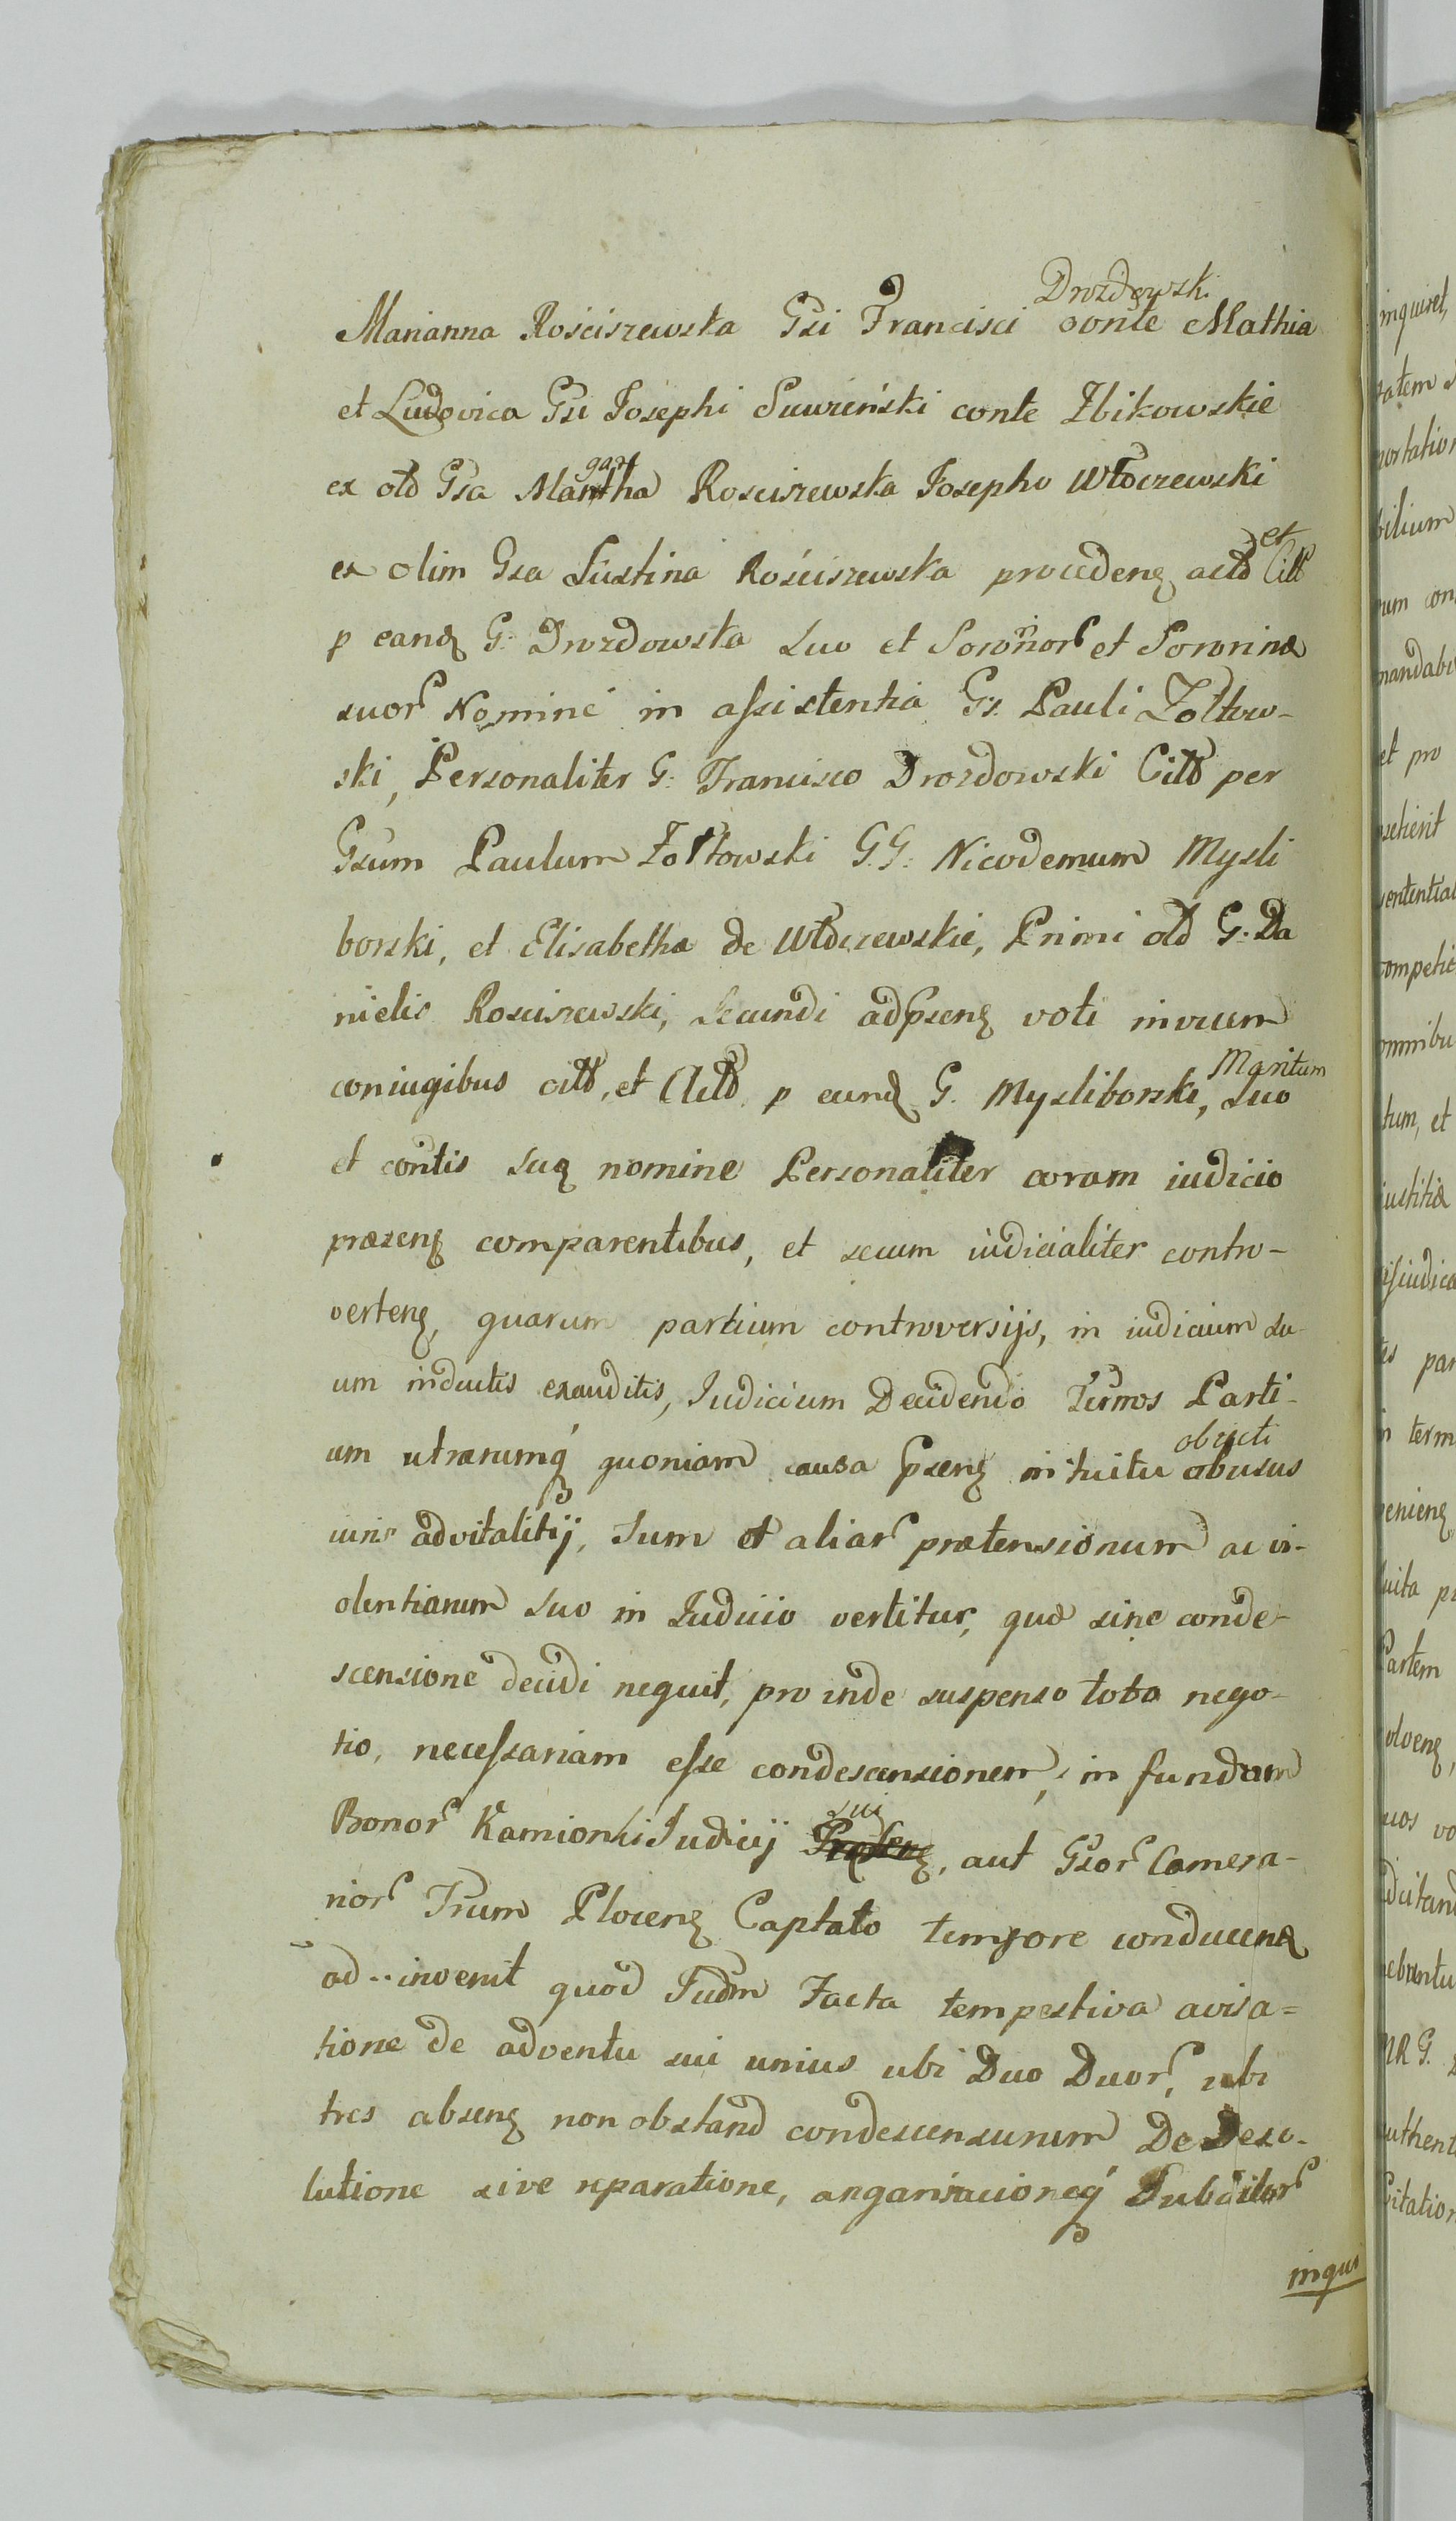 Drozdowski
Marianna Rościszewska Gsi Francisci conte Mathia
et Ludovica Gsi Josephi Suwieński conte Zbikowskie
gar
ex old Gsa Martha Rosciszewska Josepho Włoczewski
et
ex olim Gsa Justina Rościszewska procedenę actd Citt
p eandę G. Drozdowska suo et Sororior et Sororina
suor Nomine in assistentia Gs. Pauli Zołtow-
ski, Personaliter G. Francisco Drozdowski Citd per
Gsum Paulum Zołtowski G.G. Nicodemum Mysli
borski, et Elisabetha de Włoczewskie, Primi old G. Da
nielis Rosciszewski, Secundi adpsenę voti invicem
Maritum
coniugibus citt, et Actd p eundę G. Mysliborski, Suo
et contis suę nomine Personaliter coram iudicio
præsenę comparentibus, et secum iudicialiter contro-
vertenę, quarum partium controversijs, in iudicium su-
um inductis exauditis, Judicium Decidendo Turmos Parti-
objecti
um utrarumq́ quoniam causa psenę intuitu abusus
iuris advitalitij, Tum et aliar prætensionum ac vi-
olentiarum Suo in Judicio vertitur, quæ sine conde-
scensione decidi nequit, pro inde suspenso toto nego-
tio, necessariam esse condescensionem, in fundum
sui
Bonor Kamionki Judicij, aut Gsor Camera-
rior Trum Plocenę Captato tempore conducenę
ad-invenit quod Judm Facta tempestiva avisa=
tione de adventu sui unius ubi Duo Duor, ubi
tres absenę non obstand condescensurum De Deso-
lutione sive reparatione, angarisacioneq́ Subditor
inqui
inquiret,
tatem
portation
bilium
rum con
mandabi
et pro
sententia
competit
omnibu
tum, et
iustitiæ
par
term
Partem
NR G.